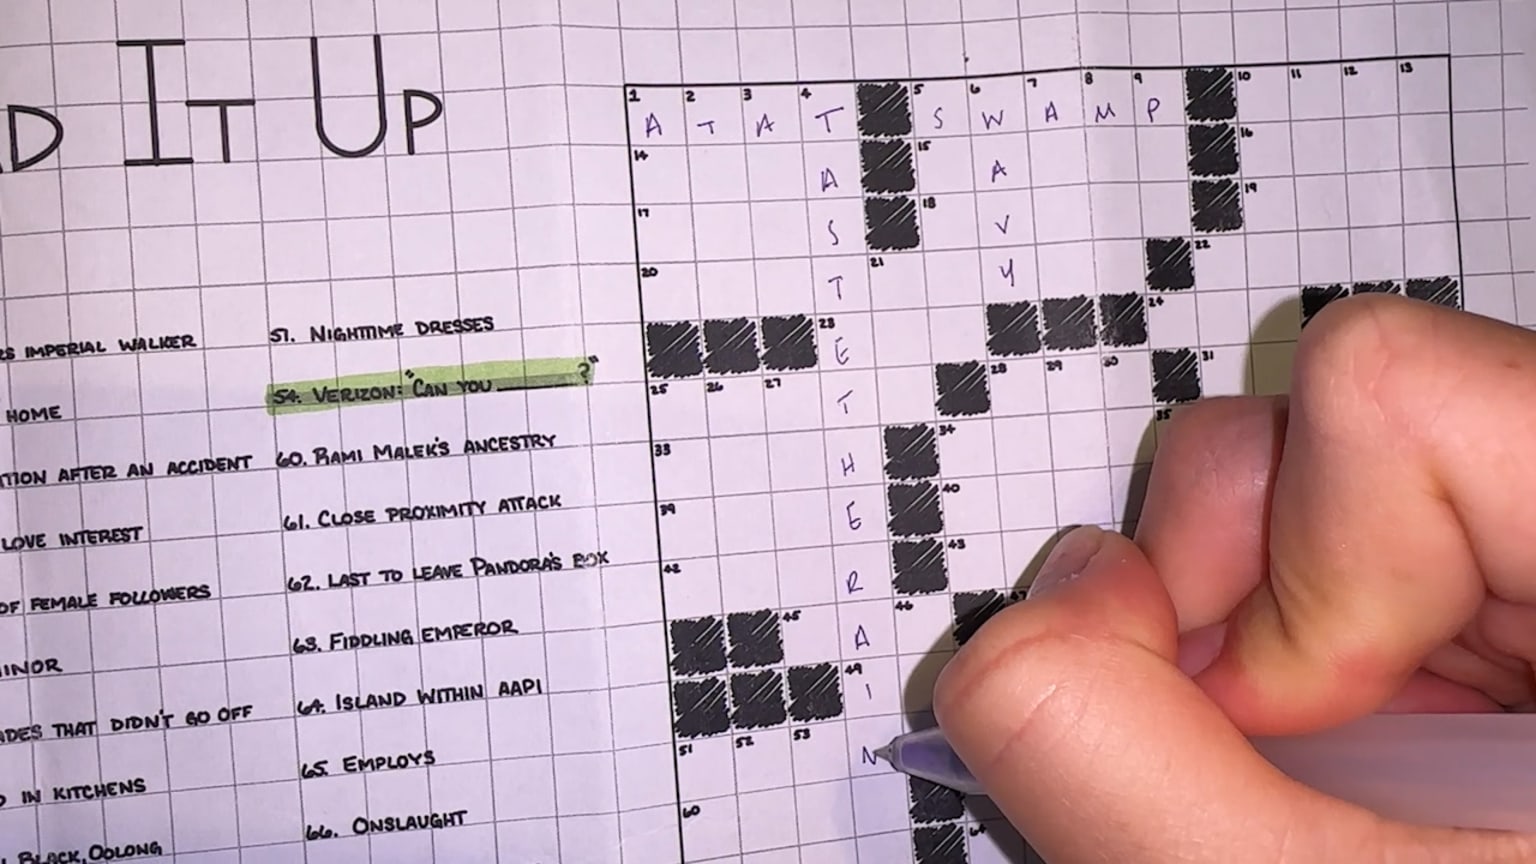 D IT UP
RS IMPERIAL WALKER
HOME
TION AFTER AN ACCIDENT
LOVE INTEREST
OF FEMALE FOLLOWERS
MINOR
ADES THAT DIDN'T GO OFF
D IN KITCHENS
BLACK, OOLONG
51. NIGHTTIME DRESSES
54. VERIZON: "CAN YOU ______?"
60. RAMI MALEK'S ANCESTRY
61. CLOSE PROXIMITY ATTACK
62. LAST TO LEAVE PANDORA'S BOX
63. FIDDLING EMPEROR
64. ISLAND WITHIN AAPI
65. EMPLOYS
66. ONSLAUGHT
1 2 3 4 5 6 7 8 9 10 11 12 13
A T A T S W A M P
14 15 16
A A
17 18 19
S V
20 21 22
T Y
23 24
E
25 26 27 28 29 30 31
T
33 34 35
H
39 40
E
42 43
R
45 46 47
A
49
I
51 52 53
N
60 64